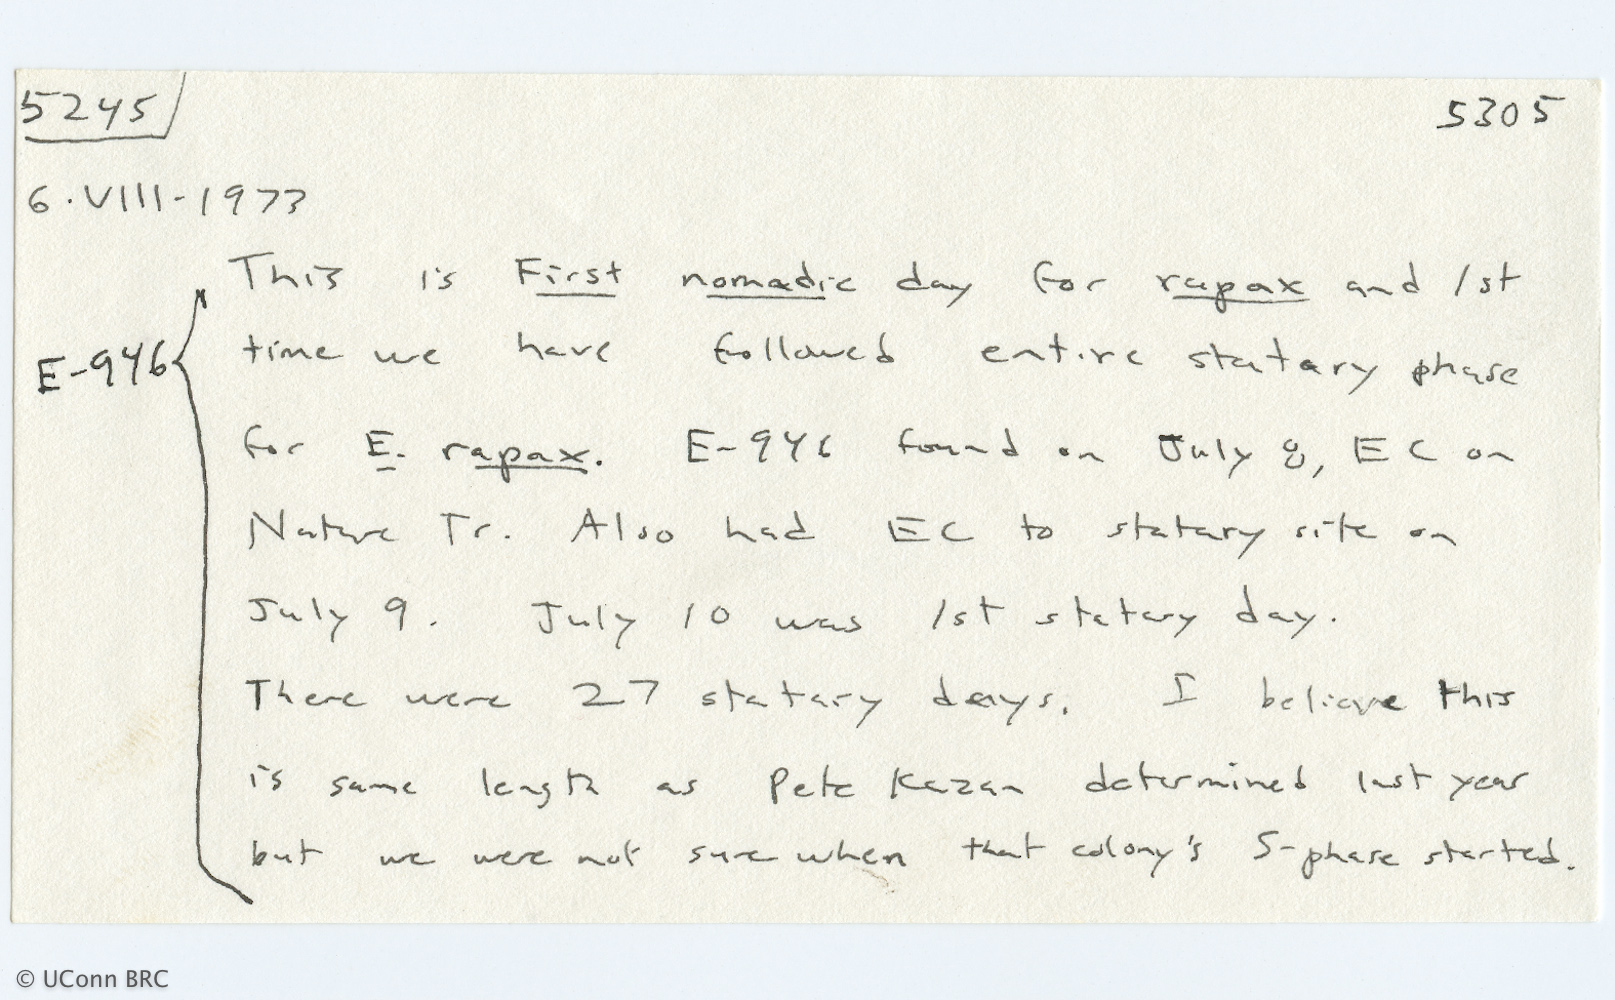 5245
5305
6.VIII-1973
This is First nomadic day for rapax and 1st
E-946
time we have followed entire statary phase
for E. rapax. E-946 found on July 8, EC on
Nature Tr. Also had EC to statary site on
July 9. July 10 was 1st statary day.
There were 27 statary days. I believe this
is same length as Pete Kazan determined last year
but we were not sure when that colony's S-phase started.
© UConn BRC